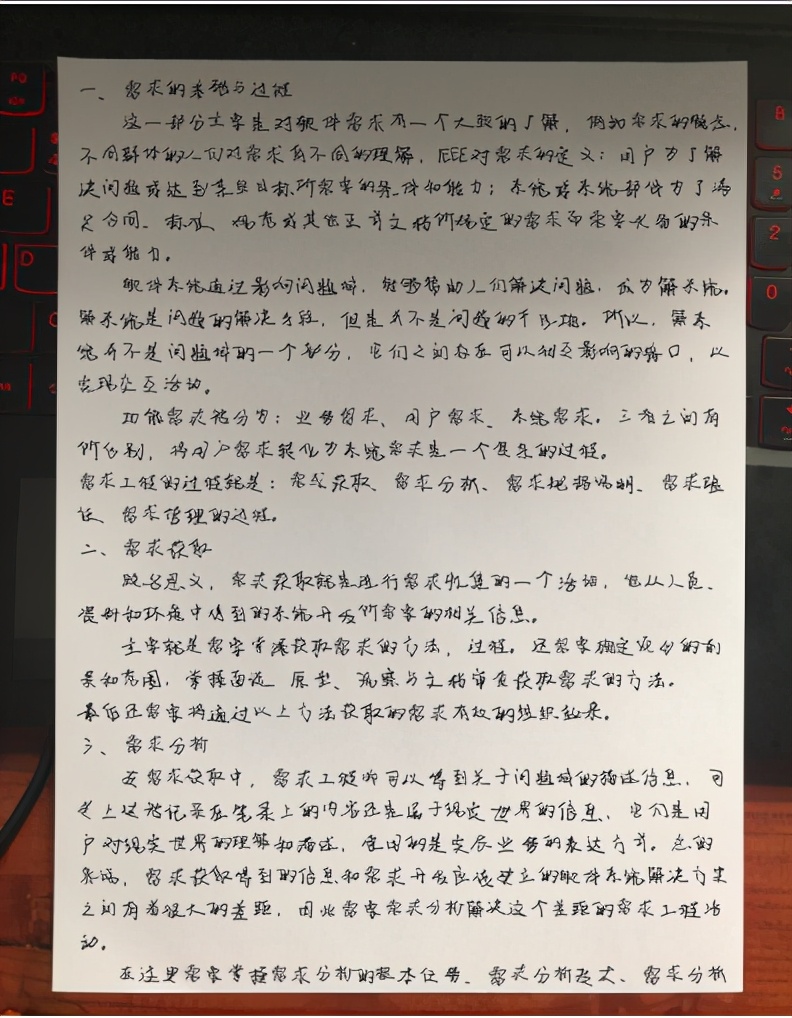 一、需求的基础与过程
这一部分主要是对软件需求有一个大致的了解，例如需求的概念，
不同群体的人们对需求有不同的理解，IEEE对需求的定义：用户为了解
决问题或达到某些目标所需要的条件和能力；系统或系统部件为了满
足合同、标准、规范或其他正式文档所规定的需求而需要具备的条
件或能力。
软件系统通过影响问题域，能够帮助人们解决问题，成为解系统。
解系统是问题的解决手段，但是并不是问题的
所以，解系
统并不是问题域的一个部分，它们之间存在可以相互影响的接口，以
实现交互活动。
功能需求被分为：业务需求、用户需求、系统需求。三者之间有
所区别，将用户需求转化为系统需求是一个复杂的过程。
需求工程的过程就是：需求获取、需求分析、需求规格说明、需求验
证、需求管理的过程。
二、需求获取
顾名思义，需求获取就是进行需求收集的一个活动，它从人员、
资料和环境中得到的系统开发所需要的相关信息。
主要就是需要掌握获取需求的方法，过程。还需要确定项目的前
景和范围，掌握面谈、原型、观察与文档审查获取需求的方法。
最后还需要将通过以上方法获取的需求有效的组织起来。
三、需求分析
在需求获取中，需求工程师可以得到关于问题域的描述信息，可
是上述被记录在笔录上的内容还是属于现实世界的信息，它们是用
户对现实世界的理解和描述，使用的是实际业务的表达方式。总的
来说，需求获取得到的信息和需求开发应该建立的软件系统解决方案
之间有着很大的差距，因此需要需求分析解决这个差距的需求工程活
动。
在这里需要掌握需求分析的根本任务、需求分析技术、需求分析